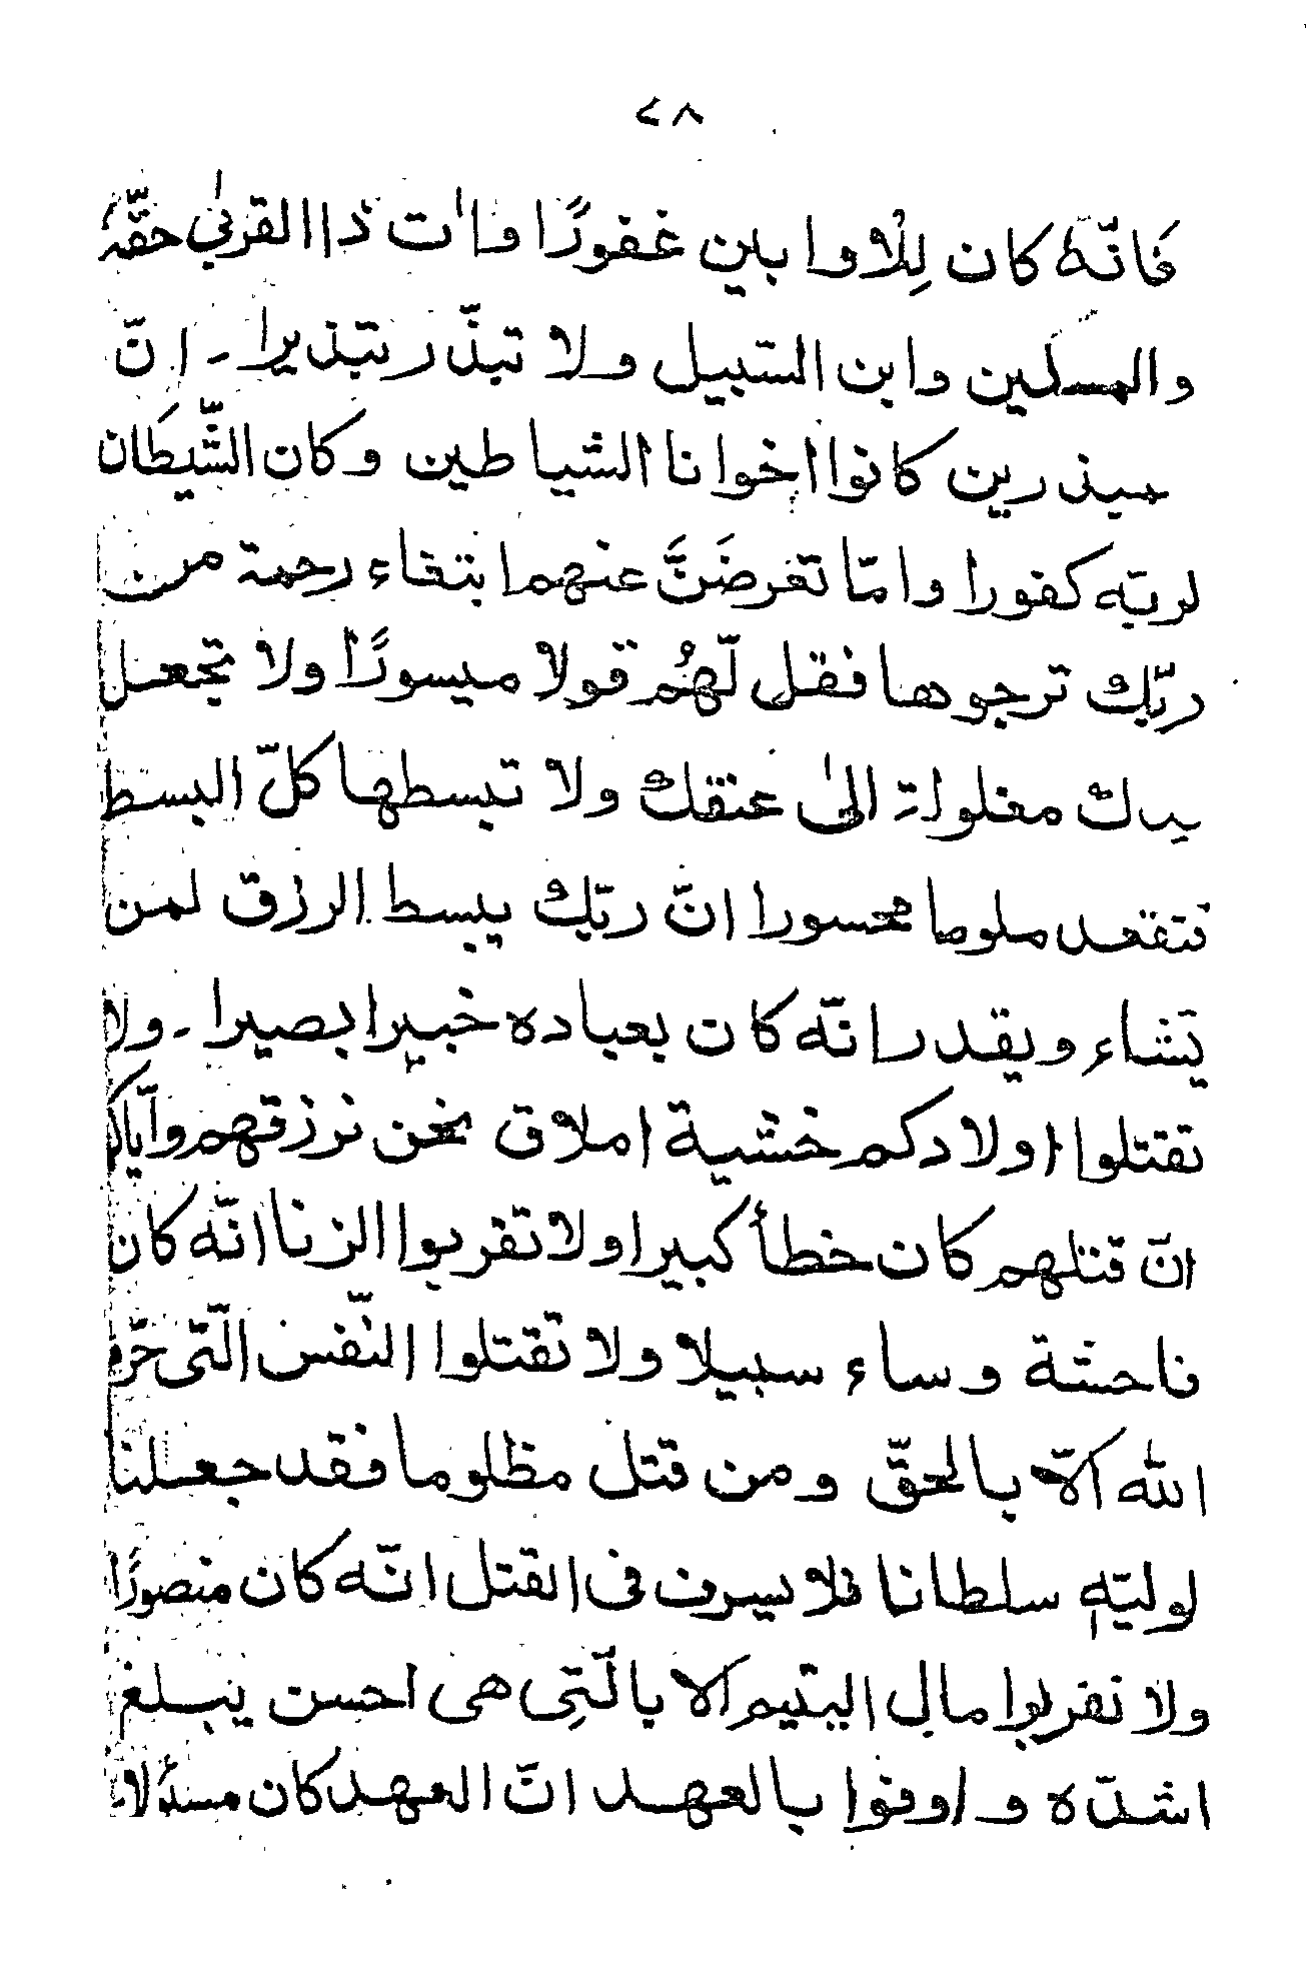 ٢٨
فانّهٗ كان لِلْاوا بين غفورًا واٰت ذا القربٰى حقّهٗ
والمسكين وابن السّبيل ولا تبذّر تبذيرا۔ انّ
مبذرين كانوا اخوانا الشياطين وكان الشّيطان
لربّه كفورا وامّا تعرضَنَّ عنهم ابتغاء رحمة من
ربّك ترجوها فقل لّهُم قولا ميسورًا ولا تجعل
يدك مغلولة الىٰ عنقك ولا تبسطها كلّ البسط
فتقعد ملوما محسورا انّ ربّك يبسط الرزق لمن
يّشاء ويقدر انّه كان بعباده خبيرا بصيرا۔ ولا
تقتلوا اولادكم خشية املاق نحن نرزقهم وايّاكم
انّ قتلهم كان خطأ كبيرا ولا تقربوا الزنا انّه كان
فاحشة وساء سبيلا ولا تقتلوا النّفس الّتى حرّم
الله الّا بالحقّ ومن قتل مظلوما فقد جعلنا
لوليّهٖ سلطانا فلا يسرف فى القتل انّه كان منصورًا
ولا تقربوا مال اليتيم الا بالّتِى هى احسن يبلغ
اشدّه واوفوا بالعهد انّ العهد كان مسئولا۔